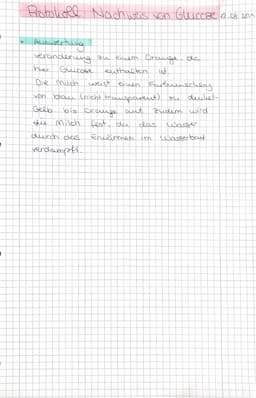 Protokoll Nachweis von Glucose
• Auswertung:
veränderung zu einem Orange, da
hier Glucose enthalten ist.
Die Milch weist einen Farbumschlag
von blau (nicht transparent) zu dunkel-
Gelb bis Orange auf. Zudem wird
die Milch fest, da das Wasser
durch das Erwärmen im Wasserbad
verdampft.